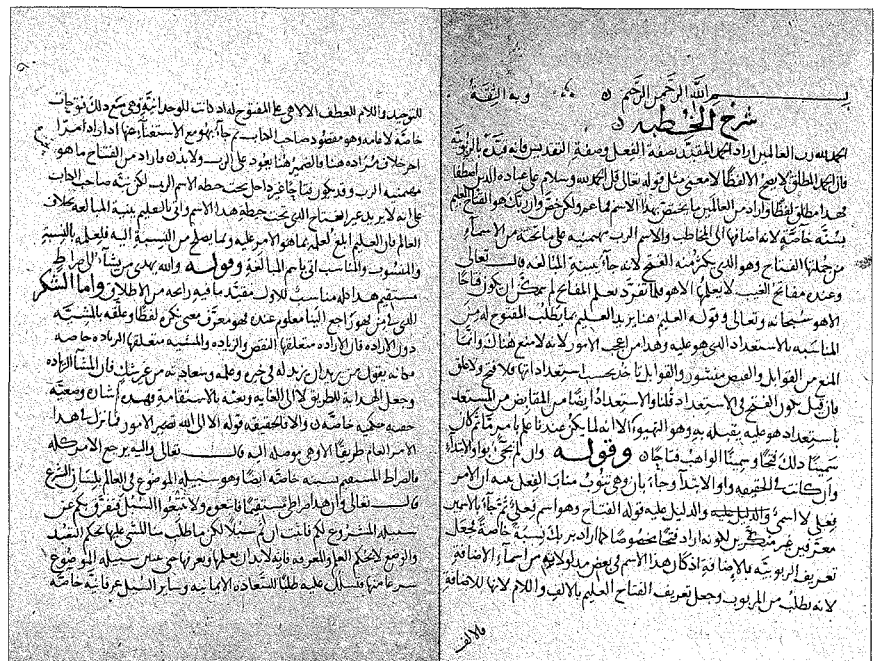 بسم الله الرحمن الرحيم وبه الثقة
شرح الخطبه
الحمد لله رب العالمين اراد الحمد المقيد بصفة الفعل وصفة التقديس فانه قيده بالربوبية
فان الحمد المطلق لا يصح الا لفظا لا معنى مثل قوله تعالى قل الحمد لله وسلام على عباده الذين اصطفى
فهذا مطلق لفظا واراد من العالمين ما يختص بهذا الاسم مما عمر ولكن خص وان يك هو الفتاح العليم
بنسبة خاصة لانه اضافها الى المخاطب والاسم الرب مهيمنيه على ما تحته من الاسماء
من جملتها الفتاح وهو الذي يكثر منه الفتح لانه جاء ببنية المبالغه قال تعالى
وعنده مفاتح الغيب لا يعلمها الا هو فلما تفرد بعلم المفاتح لم يمكن ان يكون فتاحا
الا هو سبحانه وتعالى وقوله العليم هنا يريد العليم بما يطلب المفتوح له من
المناسبه بالاستعداد الذي هو عليه وهذا من اعجب الامور لانه لا منع هناك وانما
المنع من القوابل والفيض منشور والقوابل تاخذ بحسب استعداداتها فلا فتح ولا غلق
فان قيل يكون الفتح في الاستعداد قلنا والاستعداد ايضا من الفائض من المستعد
باستعداد هو عليه يقبله به وهو التهيؤ الا انه لما لم يكن عندنا علم بامر ما ثم كان
سمينا ذلك فتحا وسمينا الواهب فتاحا وقوله وان لم تجئ بواو الابتداء
وان كانت في الحقيقه واو الابتداء وجاء بان وهي تنوب مناب الفعل بنية ان الامر
فعلي لا اسمي والدليل عليه والدليل عليه قوله الفتاح وهو اسم فعلي ثم جاء بالاسمين
معترفين غير منكرين لكونه اراد فتحا مخصوصا لما اراد بربك نسبة خاصة فجعل
تعريف الربوبيه بالاضافة اذ كان هذا الاسم في بعض مدلولاته من اسماء الاضافة
لانه يطلب من المربوب وجعل تعريف الفتاح العليم بالالف واللام لانها للاضافة
بالالف
للتوحيد واللام للعطف الالاهي على المفتوح له اذ كانت للوحدانية وهي مع ذلك فتوحات
خاصة لا عامه وهو مقصود صاحب الكتاب ثم جاء بهو مع الاستغناء عنها اذ اراد امرا
اخر خلاف مراده هنا فالضمير هنا يعود على الرب ولابد فاراد من الفتاح ما هو
مهيمنيه الرب وقد يكون فتاحا غير داخل تحت حيطه الاسم الرب لكن نبه صاحب الكتاب
على انه لا يريد غير الفتاح الذي تحت حيطه هذا الاسم واتى بالعليم ببنية المبالغه بخلاف
العالم فان العليم ابلغ لعلمه بما هو الامر عليه وبما يصلح من النسبة اليه فلعلمه بالنسبة
والمنسوب والمناسب اتى باسم المبالغة وقوله والله يهدي من يشاء الى صراط
مستقيم هذا كله مناسب للاول مقيد ما فيه رائحه من الاطلاق واما النكر
الذي في من فهو راجع الينا معلوم عنده فهو معرف معنى نكره لفظا وعلقه بالمشيئه
دون الاراده فان الاراده متعلقها النقص والزياده والمشيئه متعلقها الزياده خاصه
فكانه يقول من يريد ان يزيد له في خيره وعلمه وسعادته من غير شك فان المشا الزياده
وجعل الهداية للطريق لا الى الغايه ونعته بالاستقامة فهذه اشاره وضعية
حصه حكميه خاصة والا فالحقيقه قوله الا الى الله تصير الامور فما نزل في هذا
الامر العام طريقا الا وهي موصله اليه قال تعالى واليه يرجع الامر كله
فالصراط المستقيم نسبه خاصة ايضا وهو سبيله الموضوع في العالم بلسان الشرع
قال تعالى وان هذا صراطي مستقيما فاتبعوه ولا تتبعوا السبل فتفرق بكم عن
سبيله المشروع لكم فاثبت ان ثم سبلا لكن ما طلب منا المشي عليها بحكم التقييد
والوضع لا بحكم العلم والمعرفه فانه لابد ان نعلمها ونعرفها حتى عين سبيله الموضوع
شرعا منها فسلك عليه طلبا للسعاده الايمانيه وساير السبل عرفانية خاصة